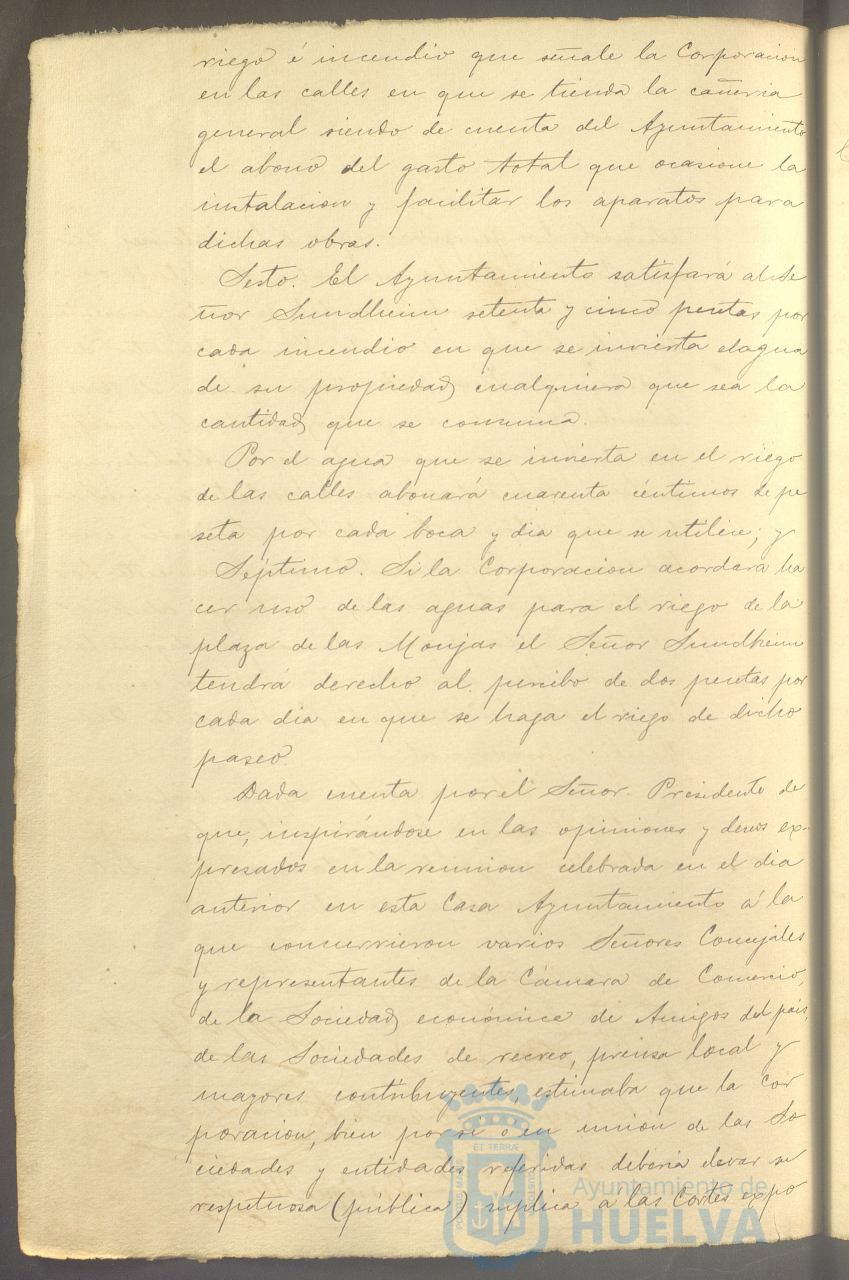 riego é incendio que señale la Corporacion
en las calles en que se tienda la cañeria
general siendo de cuenta del Ayuntamiento
el abono del gasto total que ocasione la
instalacion y facilitar los aparatos para
dichas obras.
Sesto. El Ayuntamiento satisfará al Se
ñor Sundheim setenta y cinco pesetas por
cada incendio en que se invierta el agua
de su propiedad, cualquiera que sea la
cantidad que se consuma.
Por el agua que se invierta en el riego
de las calles abonará cuarenta céntimos de pe
seta por cada boca y dia que se utilice; y
Séptimo. Si la Corporacion acordara ha
cer uso de las aguas para el riego de la
plaza de las Monjas el Señor Sundheim
tendrá derecho al percibo de dos pesetas por
cada dia en que se haga el riego de dicho
paseo.
Dada cuenta por el Señor Presidente de
que, inspirándose en las opiniones y deseos ex-
presados en la reunion celebrada en el dia
anterior en esta Casa Ayuntamiento á la
que concurrieron varios Señores Concejales
y representantes de la Cámara de Comercio,
de la Sociedad económica de Amigos del pais,
de las Sociedades de recreo, prensa local y
mayores contribuyentes, estimaba que la Cor
poracion, bien por si o en union de las So
ciedades y entidades referidas deberia elevar su
respetuosa (pública) súplica a las Cortes expo
ET TERRÆ
Ayuntamiento de
HUELVA